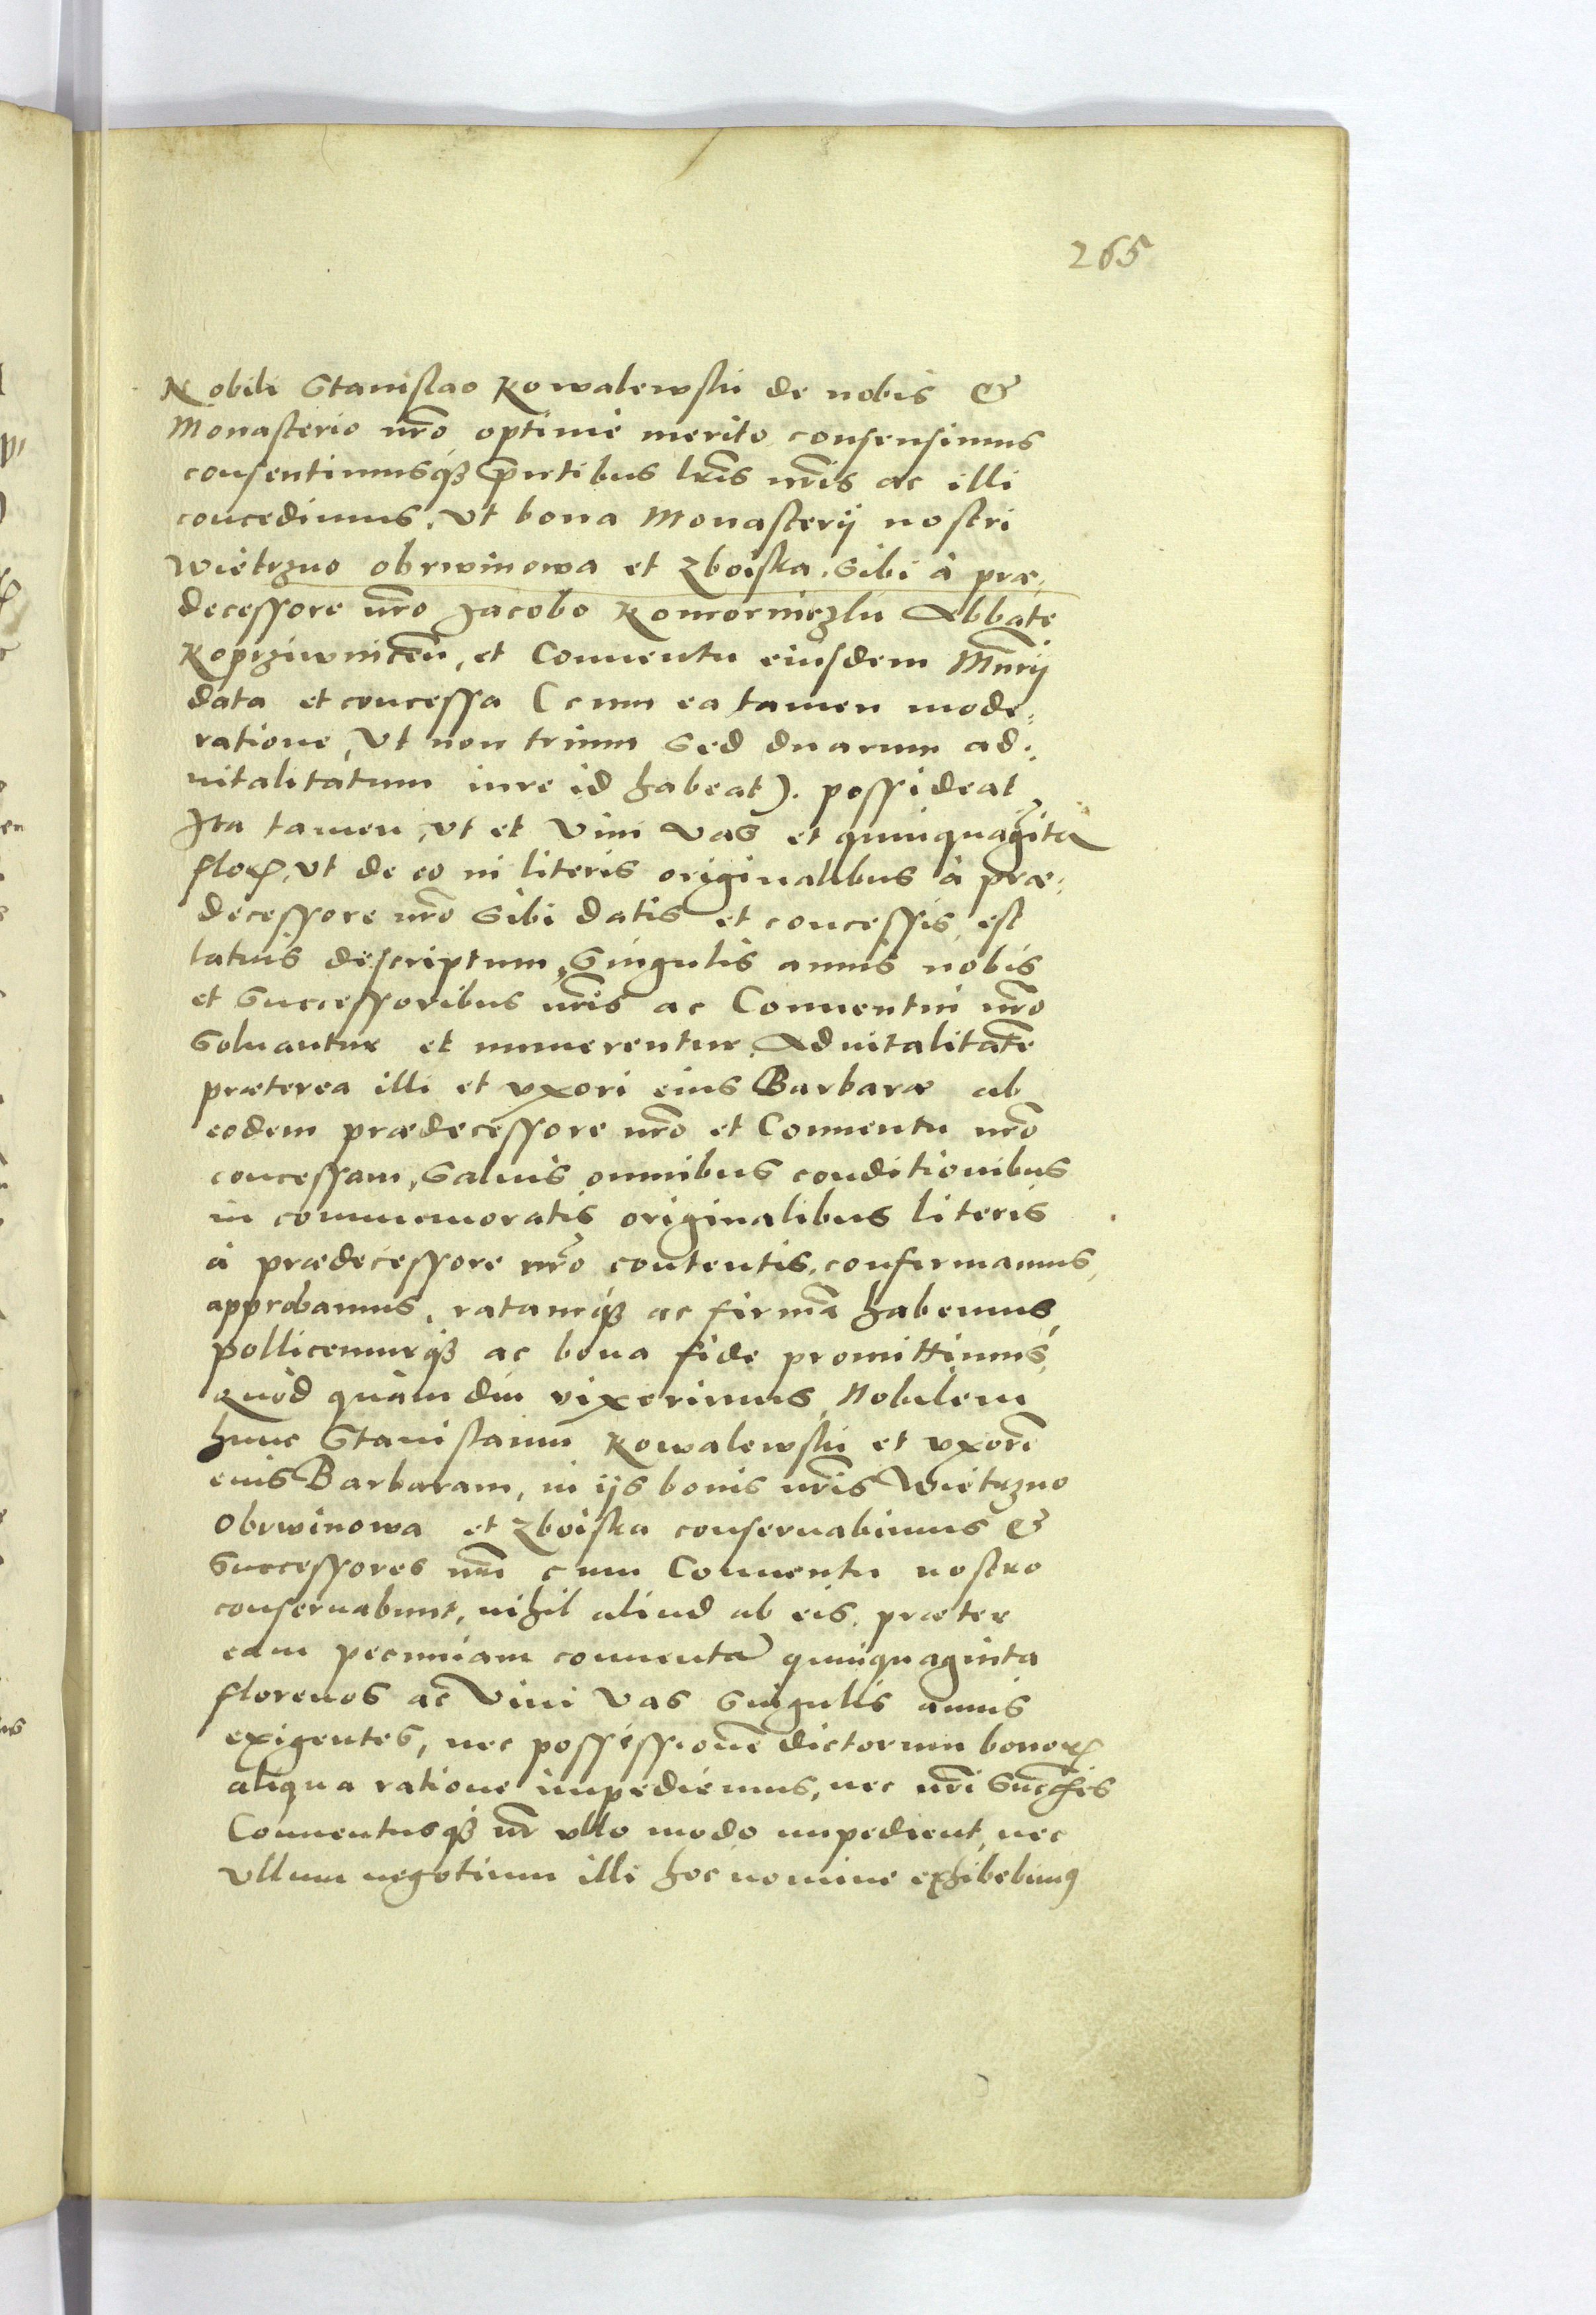 265
Nobili Stanislao Kowalewskii de nobis &
Monasterio nr̃o optimè merito consensimus
consentimusq́ꝫ p̃ntibus lr̃is nr̃is ac illi
concedimus, vt bona Monasterij nostri
Wietrzno obrwinowa et Zboiska, sibi à præ,
decessore nr̃o Jacobo Komorniczky Abbate
Koprziwnicẽñ, et Conuentu eiusdem Mñrij
data et concessa (cum ea tamen mode:
ratione, vt non trium sed duarum ad:
uitalitátum iure id habeat). possideat
Ita tamen, vt et Vini vas et quinquagĩta
floꝝ, vt de eo in literis originalibus à præ:
decessore nr̃o sibi datis et concessis, est
latius descriptum, singulis annis nobis
et successoribus nr̃is ac Conuentui nr̃o
soluantur et numerentur. Aduitalitatẽ
præterea illi et vxori eius Barbaræ ab
eodem prædecessore nr̃o et Conuentu nr̃o
concessam, saluis omnibus conditionibus
in commemoratis originalibus literis
à prædecessore nr̃o contentis, confirmamus,
approbamus, ratamq́ꝫ ac firmã habemus,
pollicemurq́ꝫ ac bona fide promittimus,
quòd quàm diu vixerimus, Nobilem
hunc Stanislaum Kowalewskii et vxorẽ
eius Barbaram, in ijs bonis nr̃is Wietrzno
Obrwinowa et Zboiska conseruabimus &
successores nr̃i cum Conuentu nostro
conseruabunt, nihil aliud ab eis, præter
eam pecuniam conuentã quinquaginta
florenos ac Vini vas singulis annis
exigentes, nec possessionẽ dictorum bonoꝝ
aliqua ratione impediemus, nec nr̃i succ̃ses
Conuentusq́ꝫ nr̃ vllo modo impedient, nec
vllum negotium illi hoc nomine exhibebimꝰ